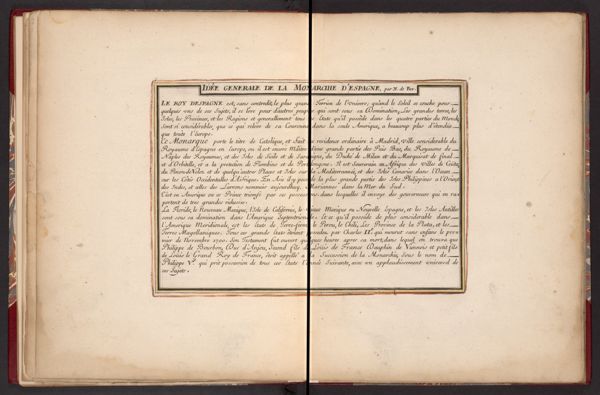 IDÉE GENERALE DE LA MONARCHIE D'ESPAGNE, par N. de Fer.
LE ROY D'ESPAGNE est, sans contredit, le plus grand Terrien de l'Univers; quand le Soleil se couche pour
quelques uns de ses Sujets, il se leve pour d'autres peuples qui sont sous sa Domination, Les grandes terres, les
Isles, les Provinces, et les Regions et generallement tous les Etats qu'il possède dans les quatre parties du Monde,
sont si considérables, que ce qui relève de sa Couronne dans la seule Amerique, a beaucoup plus d'etendüe
que toute l'Europe.
Ce Monarque porte le titre de Catolique, et fait sa residence ordinaire à Madrid, Ville considérable du
Royaume d'Espagne en Europe, ou il est encore Maître d'une grande partie des Païs Bas, du Royaume de
Naples, des Royaumes, et des Isles de Sicile et de Sardaigne, du Duché de Milan et du Marquisat de final
et d'Orbitelle, et a la protection de Piombino et de Portolongone. Il est Souverain en Afrique des Villes de Ceüta,
et de quelqu'autres Places et Isles sur la Mediterranée, et des Isles Canaries dans l'Ocean
sur les Côtes Occidentalles d'Afrique. En Asie il possede la plus grande partie des Isles Philipines a l'Orient
des Indes, et celles des Larrons nommées aujourdhuy, Mariannes dans la Mer du Sud.
C'est en Amerique ou ce Prince triomfe par ses possessions, dans lesquelles il envoye des gouverneurs qui en rap
portent de tres grandes richesses.
La Floride, le Nouveau Mexique, l'Isle de Californie, le vieux Mexique ou Nouvelle Espagne, et les Isles Antilles
sont sous sa domination dans l'Amerique Septentrionale. Et ce qu'il possède de plus considerable dans
l'Amerique Meridionale, est les états de Terre-ferme, le Perou, le Chili, Les Province de la Plata, et les
Terres Magellaniques. Tous ces grands États étoient possedez par Charles II.e qui mourut sans enfans le pre
mier de Novembre 1700. Son Testament fut ouvert quelques heures apres sa mort, dans lequel on trouva que
Philippe de Bourbon, Duc d'Anjou, Second fils de Louis de France Dauphin de Viennois et petit fils
de Louis le Grand Roy de France, étoit appellé a la Succession de la Monarchie, Sous le nom de
Philippe V.e qui prit possession de tous ces États l'année Suivante, avec un applaudissement universel de
ses Sujets.